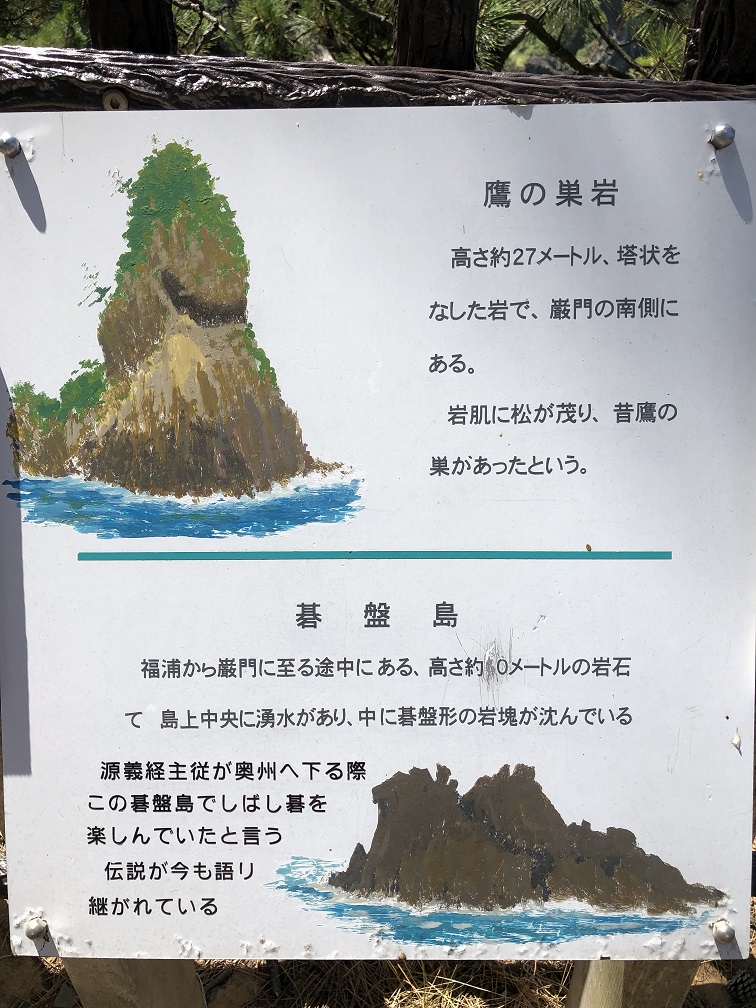 鷹の巣岩
高さ約27メートル、塔状を
なした岩で、巌門の南側に
ある。
岩肌に松が茂り、昔鷹の
巣があったという。
碁盤島
福浦から巌門に至る途中にある、高さ約 0メートルの岩石
て 島上中央に湧水があり、中に碁盤形の岩塊が沈んでいる
源義経主従が奥州へ下る際
この碁盤島でしばし碁を
楽しんでいたと言う
伝説が今も語り
継がれている